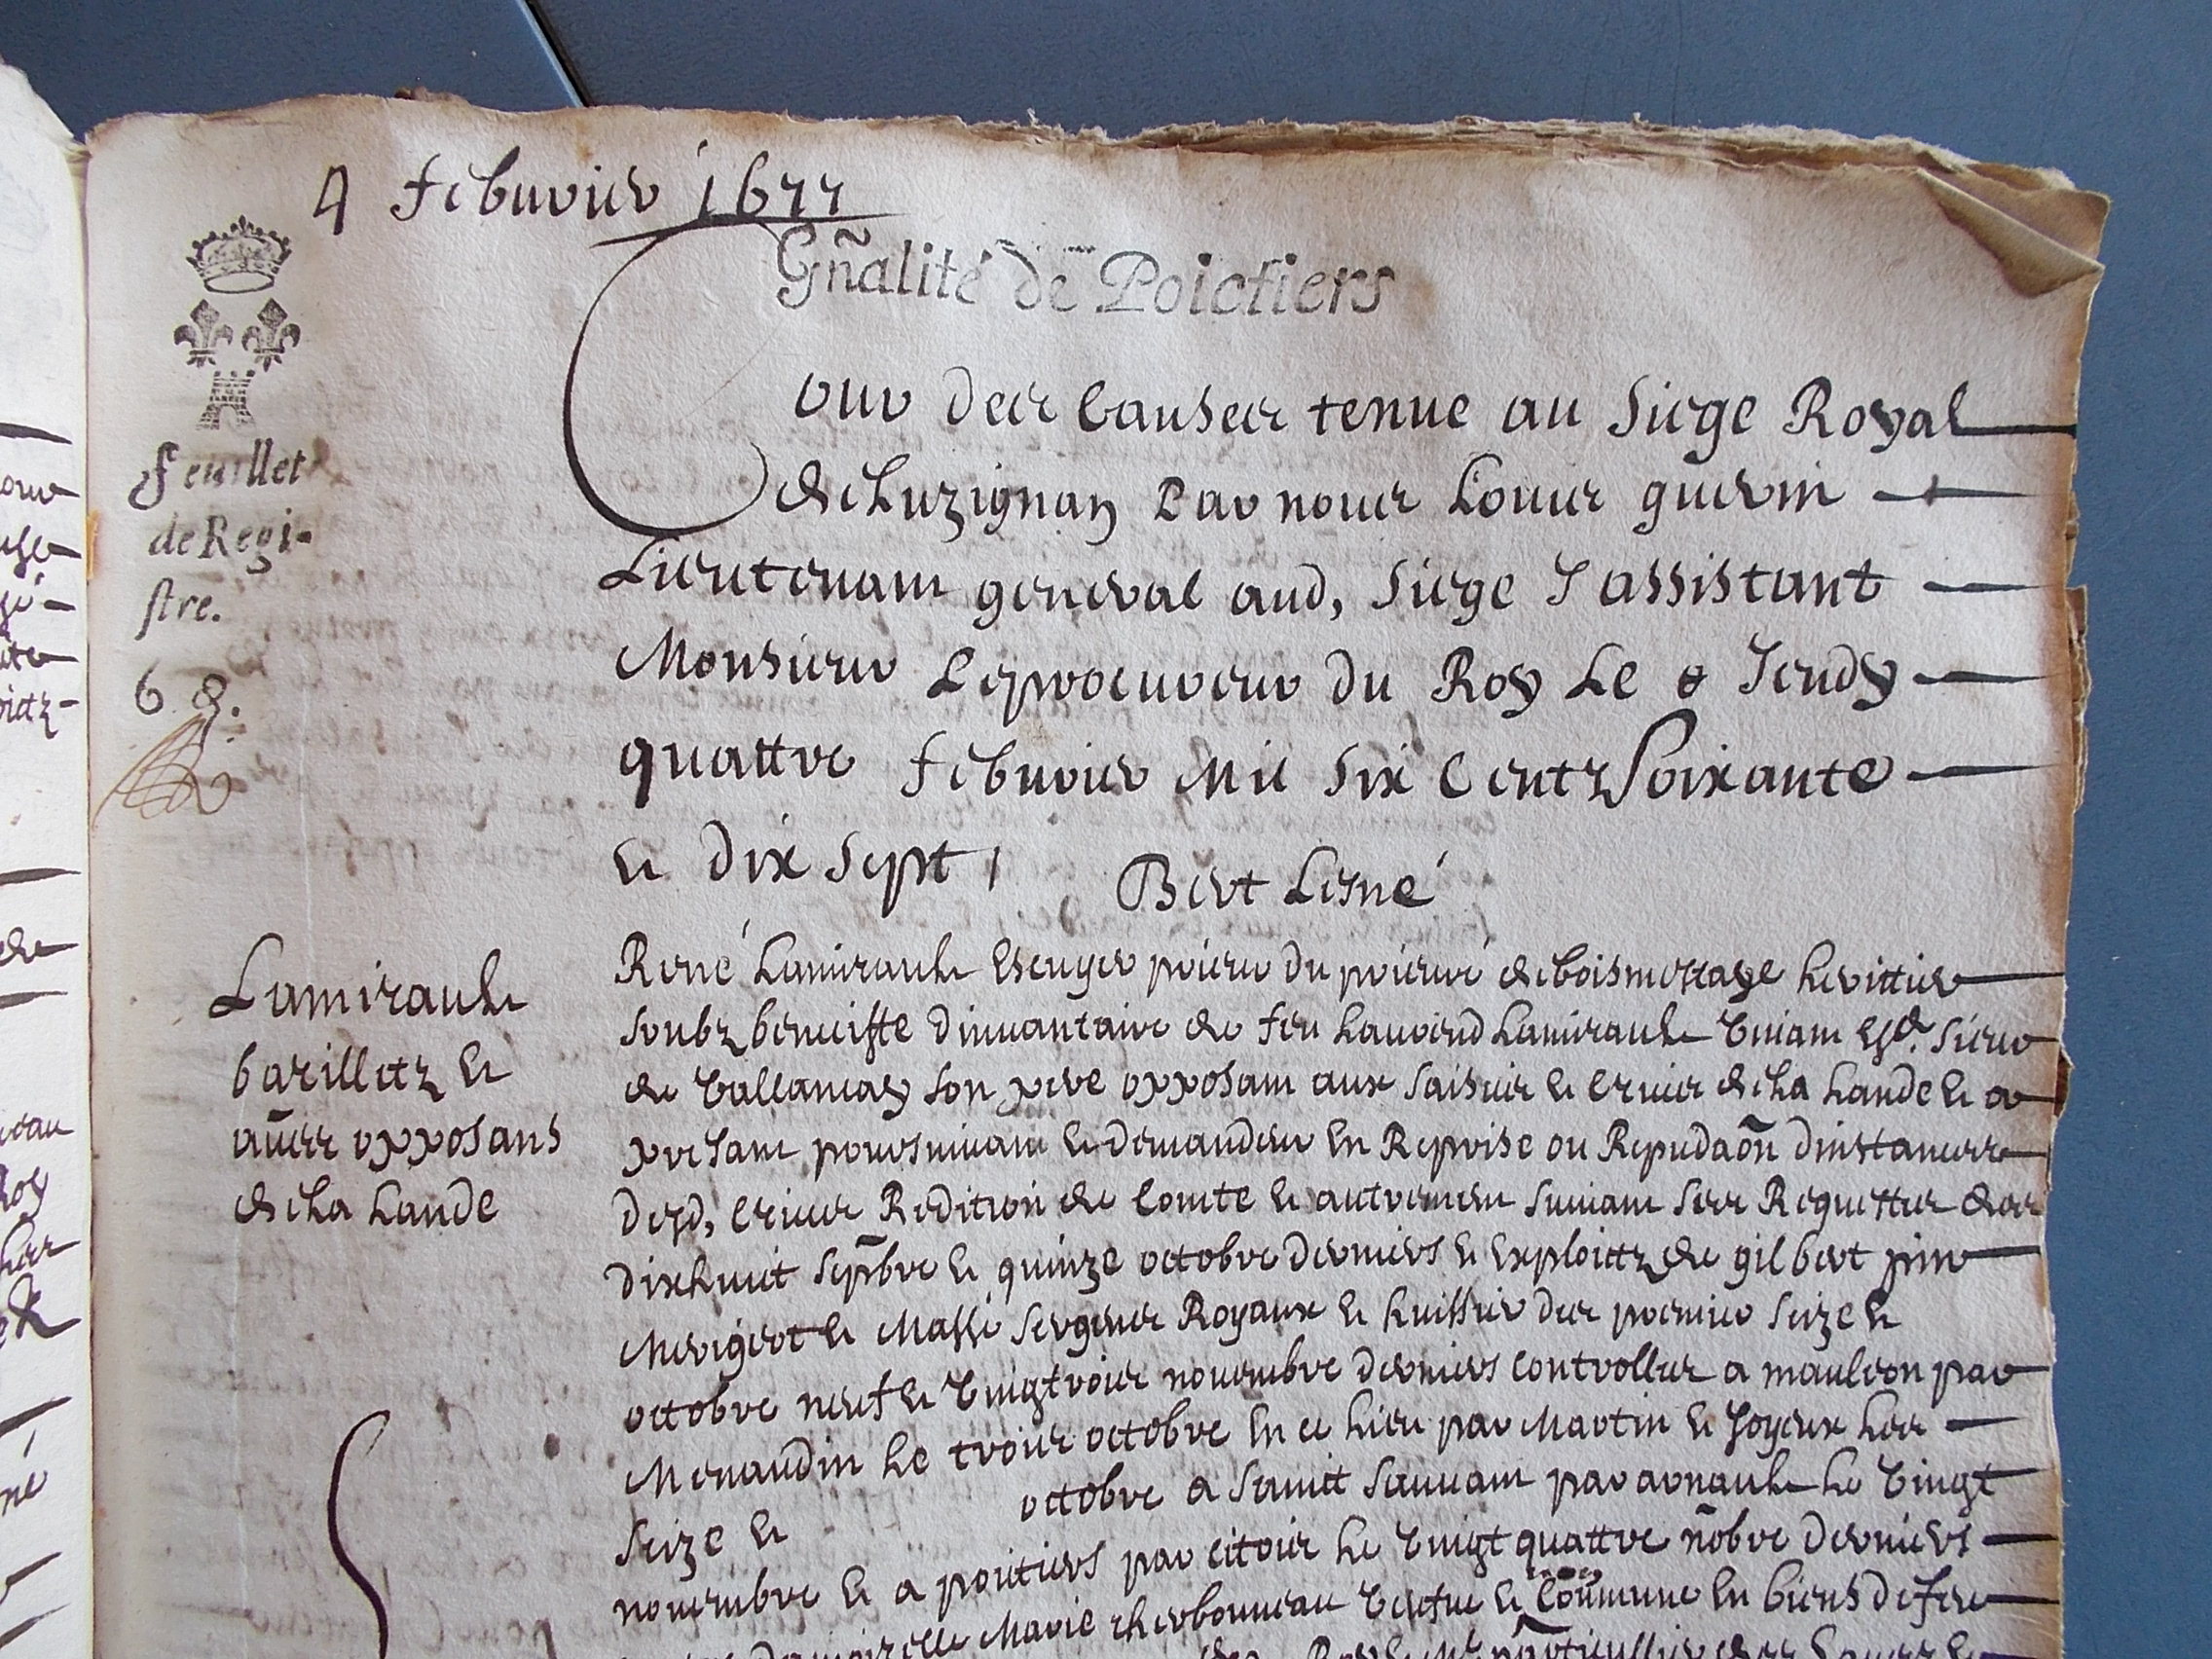 4 febuvrier 1677
Gñalité de Poictiers
Feuillet
de Regi-
stre.
6 8.
Cour des Causes tenue au Siege Royal
de Luzignan Par nous Louis guerin
Lieutenant general aud, Siege Y assistant
Monsieur Le procureur du Roy Le Jeudy
quattre febuvrier Mil Six Centz Soixante
et dix Sept
Bert Lesné
Lamirault
barilletz et
aues opposans
de La Lande
René Lamirault Escuyer prieur du prieuré de boismettaye herittier
soubz beneiffe dinuantaire de feu Laurend Lamirault viuant Esc. sieur
de son pere opposant aux saisies et criees de La Lande et a
present poursuiuant et demandeur En Reprise ou Repudaõn dinstances
desd, criees Redition de Comte et autrement suiuant ses Requettes des
dixhuit sepbre et quinze octobre derniers et Exploictz de gilbert
et Massé sergens Royaux et huissier des premier seize et
octobre neuf et vingt trois nouembre derniers controlles a mauleon par
Menaudin Le trois octobre En ce Lieu par Martin et Joyeux Les
seize et octobre a sauuant par arnault Le vingt
nouembre et a poitiers par citois Le vingt quattre nõbre derniers
damoizelle Marie cherbonneau vefue et Commune En biens de feu